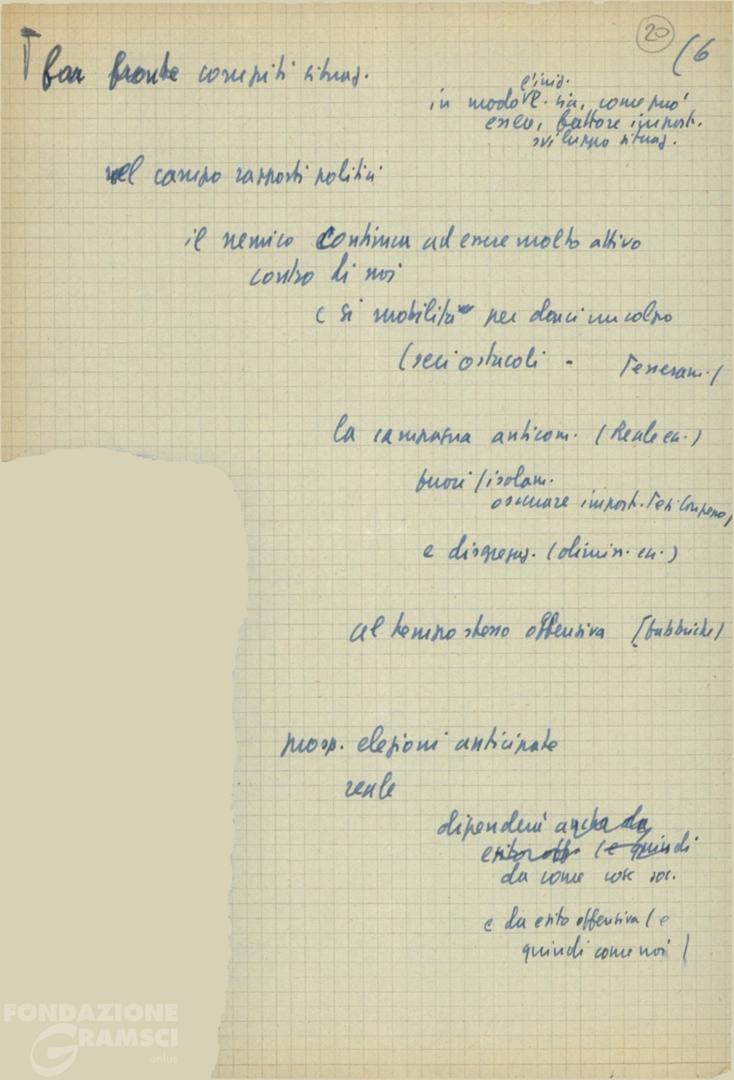 20
(6
far fronte compiti situaz.
l'iniz.
in modo sia, come può
essere, fattore import.
sviluppo situaz.
nel campo rapporti politici
il nemico continua ad essere molto attivo
contro di noi
e si mobilita per darci un colpo
(seri ostacoli - Tesseram.)
la campagna anticom. (Reale ecc.)
fuori / isolam.
oscurare import. Tesi Congresso
e disgregaz. (dimiss. ecc.)
al tempo stesso offensiva [fabbriche]
prosp. elezioni anticipate
reale
dipenderà anche da
esito off. (e quindi
da come cose soc.
e da esito offensiva (e
quindi come noi)
FONDAZIONE
GRAMSCI
onlus